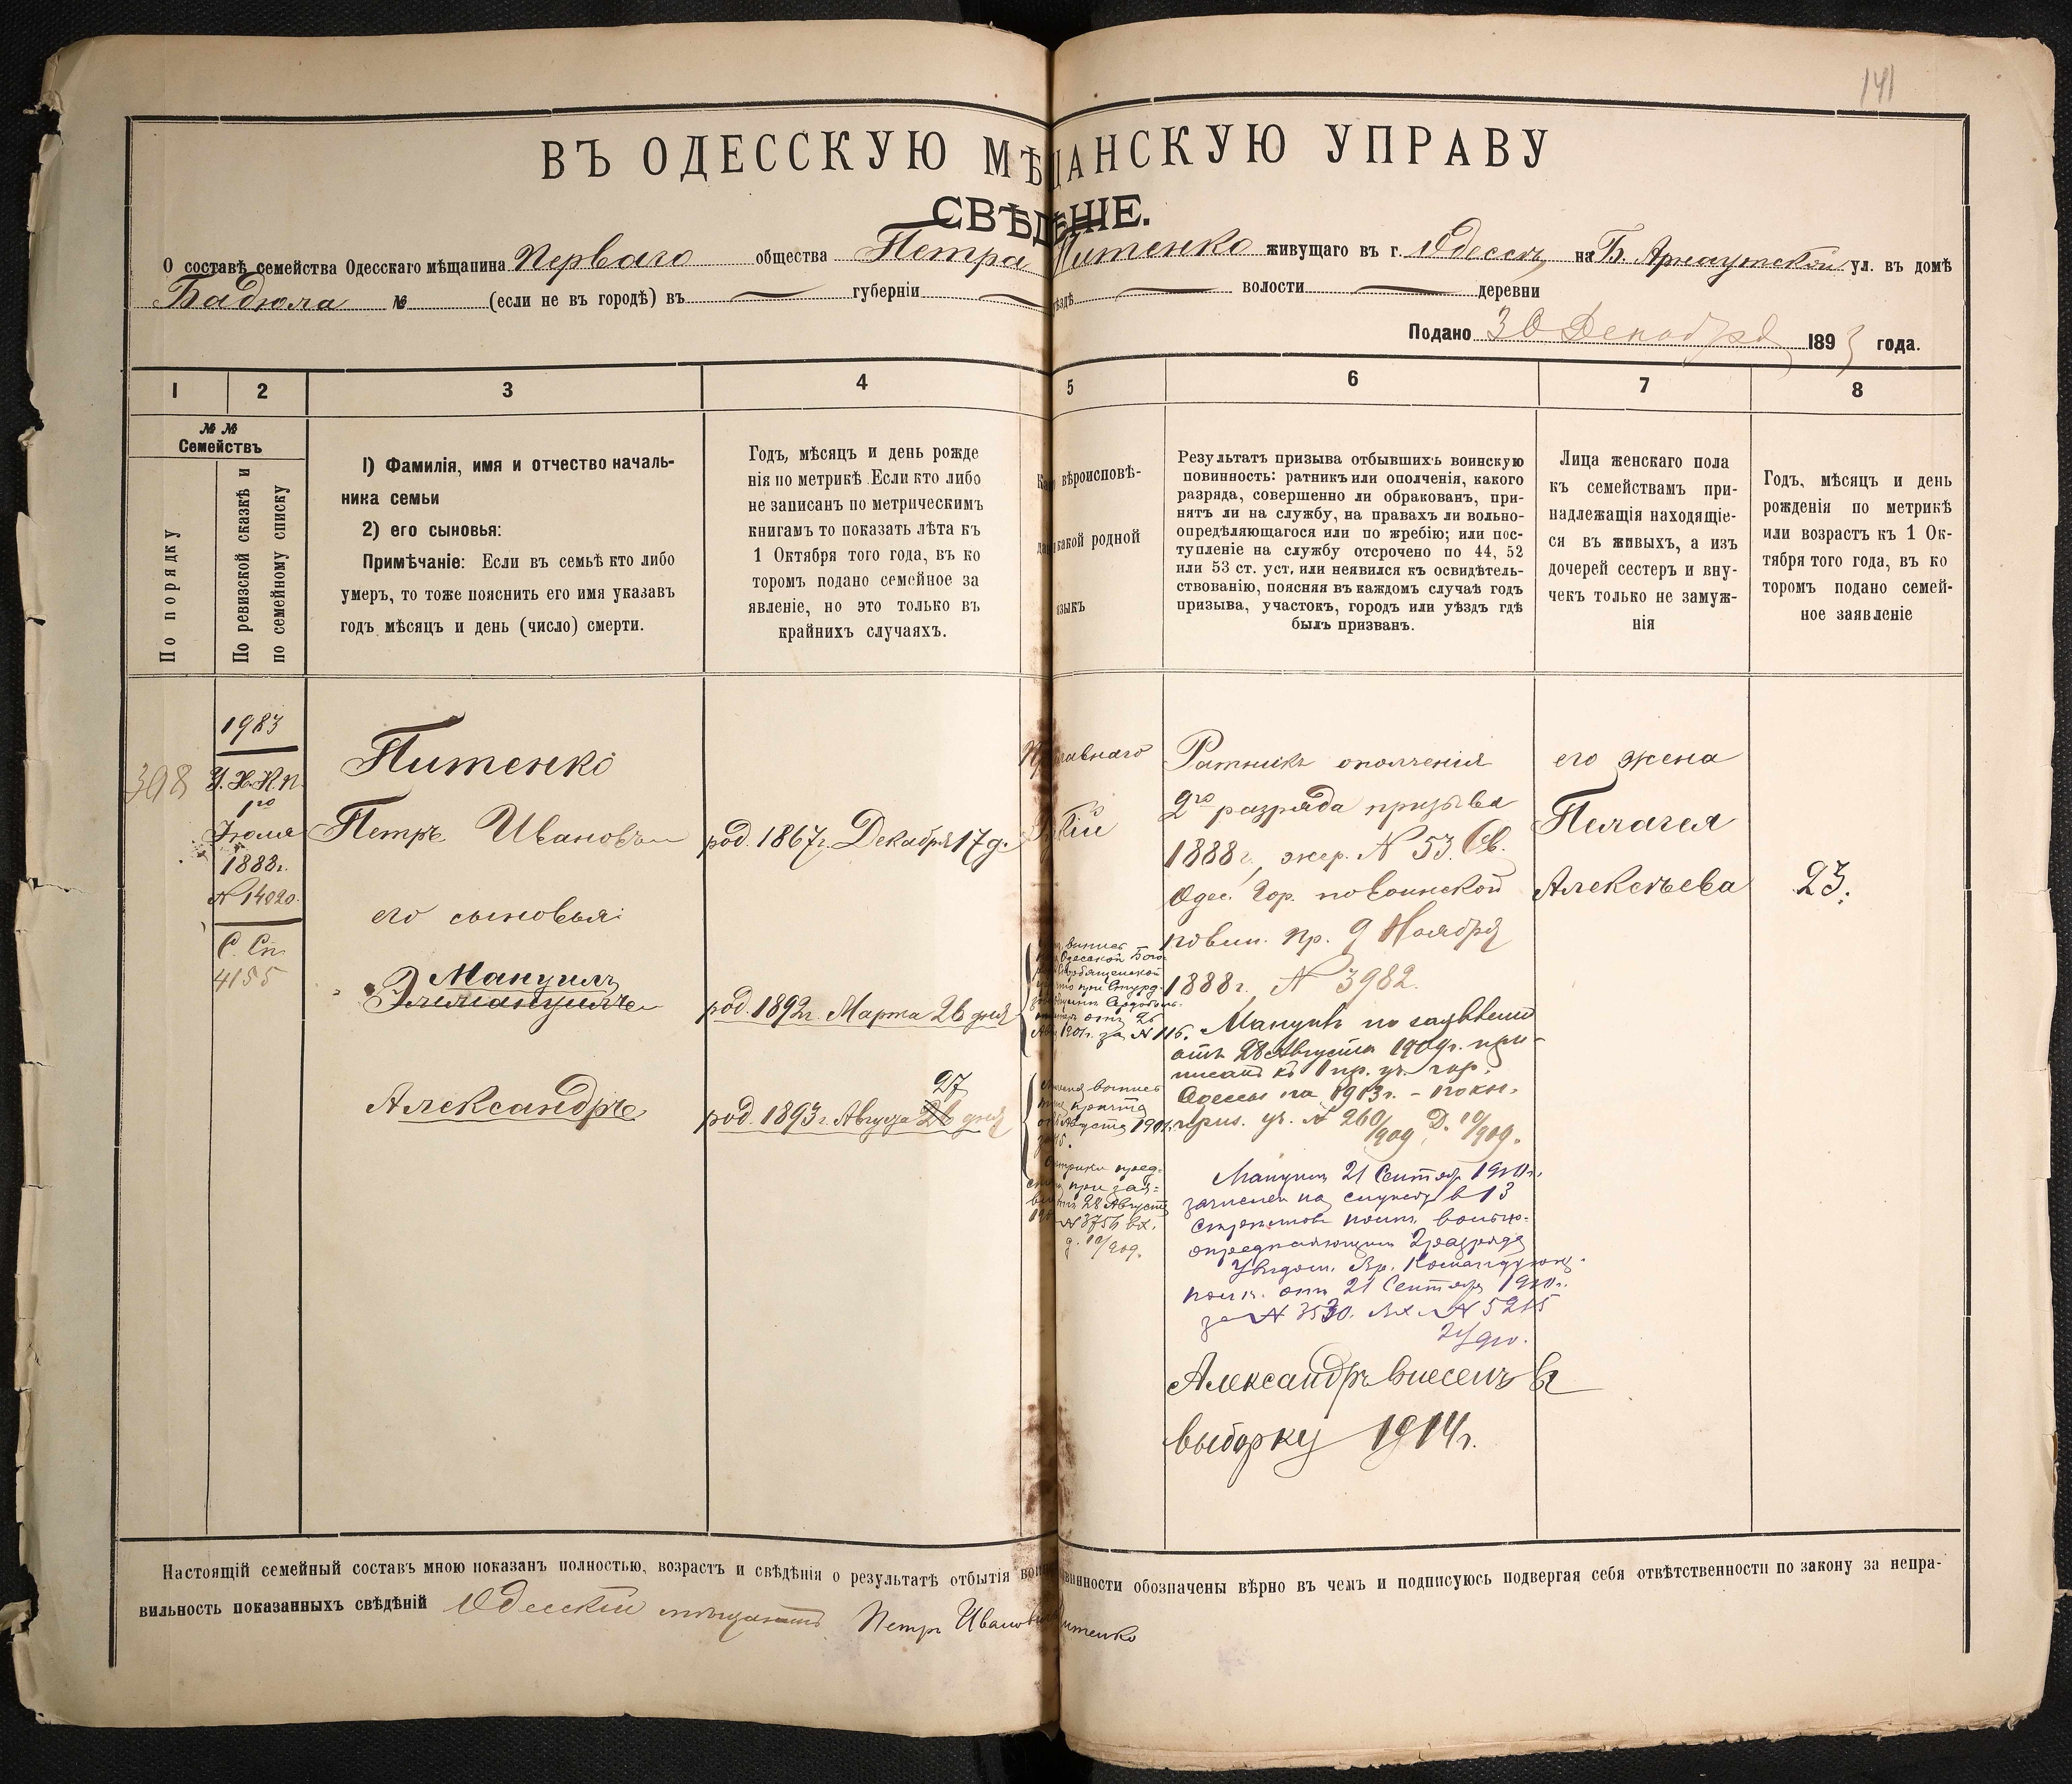 141
ВЪ ОДЕССКУЮ МѢЩАНСКУЮ УПРАВУ
СВѢДѢНІЕ.
О составѣ семейства Одесскаго мѣщанина Перваго общества Петра Питенко живущаго въ г. Одессѣ на Б. Арнаутской ул. въ домѣ
Бадюла № (если не въ городѣ) въ губерніи уѣздѣ волости деревни
Подано 30 Декабря 1893 года.
1 2 3 4 5 6 7 8
№№
Семействъ
По порядку
По ревизской сказкѣ и
по семейному списку
1) Фамилія, имя и отчество началь-
ника семьи
2) его сыновья:
Примѣчаніе: Если въ семьѣ кто либо
умеръ, то тоже пояснить его имя указавъ
годъ мѣсяцъ и день (число) смерти.
Годъ, мѣсяцъ и день рожде
нія по метрикѣ. Если кто либо
не записанъ по метрическимъ
книгамъ то показать лѣта къ
1 Октября того года, въ ко
торомъ подано семейное за
явленіе, но это только въ
крайнихъ случаяхъ.
вѣроисповѣ-
какой родной
языкъ
Результатъ призыва отбывшихъ воинскую
повинность: ратникъ или ополченія, какого
разряда, совершенно ли обракованъ, при-
нятъ ли на службу, на правахъ ли вольно-
опредѣляющагося или по жребію; или пос-
тупленіе на службу отсрочено по 44, 52
или 53 ст. уст, или неявился къ освидѣтель-
ствованію, поясняя въ каждомъ случаѣ годъ
призыва, участокъ, городъ или уѣздъ гдѣ
былъ призванъ.
Лица женскаго пола
къ семействамъ при-
надлежащія находящіе-
ся въ живыхъ, а изъ
дочерей сестеръ и вну-
чекъ только не замуж-
нія
Годъ, мѣсяцъ и день
рожденія по метрикѣ
или возрастъ къ 1 Ок-
тября того года, въ ко
торомъ подано семей-
ное заявленіе
398
1983
У. Х. К. П.
1го
Іюля
1888г.
N 14020.
С. Сп.
4155
Питенко
Петръ Ивановъ
род. 1867г. Декабря 17 д.
его сыновья:
Мануилъ
Эммануилъ
род. 1892г. Марта 26 дня
Александръ
27
род. 1893г. Августа 26 дня
Одесской
N 116.
Августа 1901г.
28 Августа
N 3756 вх.
Ратникъ ополченія
2го разряда призыва
1888г, жер. N 53. Св.
Одес. Гор. по воинской
повин. Пр. 9 Ноября
1888г, N 3982.
Мануилъ по заявленію
отъ 28 Августа 1909г. при-
писанъ къ 1 пр. уч. гор.
Одессы на 1913г.
N 260/909 Д. 19/909.
Мануилъ 21 Сентября 1910г.
зачислен на службу в 13
Стрелков. полк вольно-
определяющимся 2 разряда
Уведом. Вр. Командующ.
полк. отъ 21 Сентября 1910г.
за N 3530. Вх. N 5215
Александръ внесенъ въ
выборку 1914г.
его жена
Пелагея
Алексѣева
23.
Настоящій семейный составъ мною показанъ полностью, возрастъ и свѣдѣнія о результатѣ отбытія воинской повинности обозначены вѣрно въ чемъ и подписуюсь подвергая себя отвѣтственности по закону за непра-
вильность показанныхъ свѣдѣній Одесскій мѣщанинъ Петръ Ивановъ Питенко